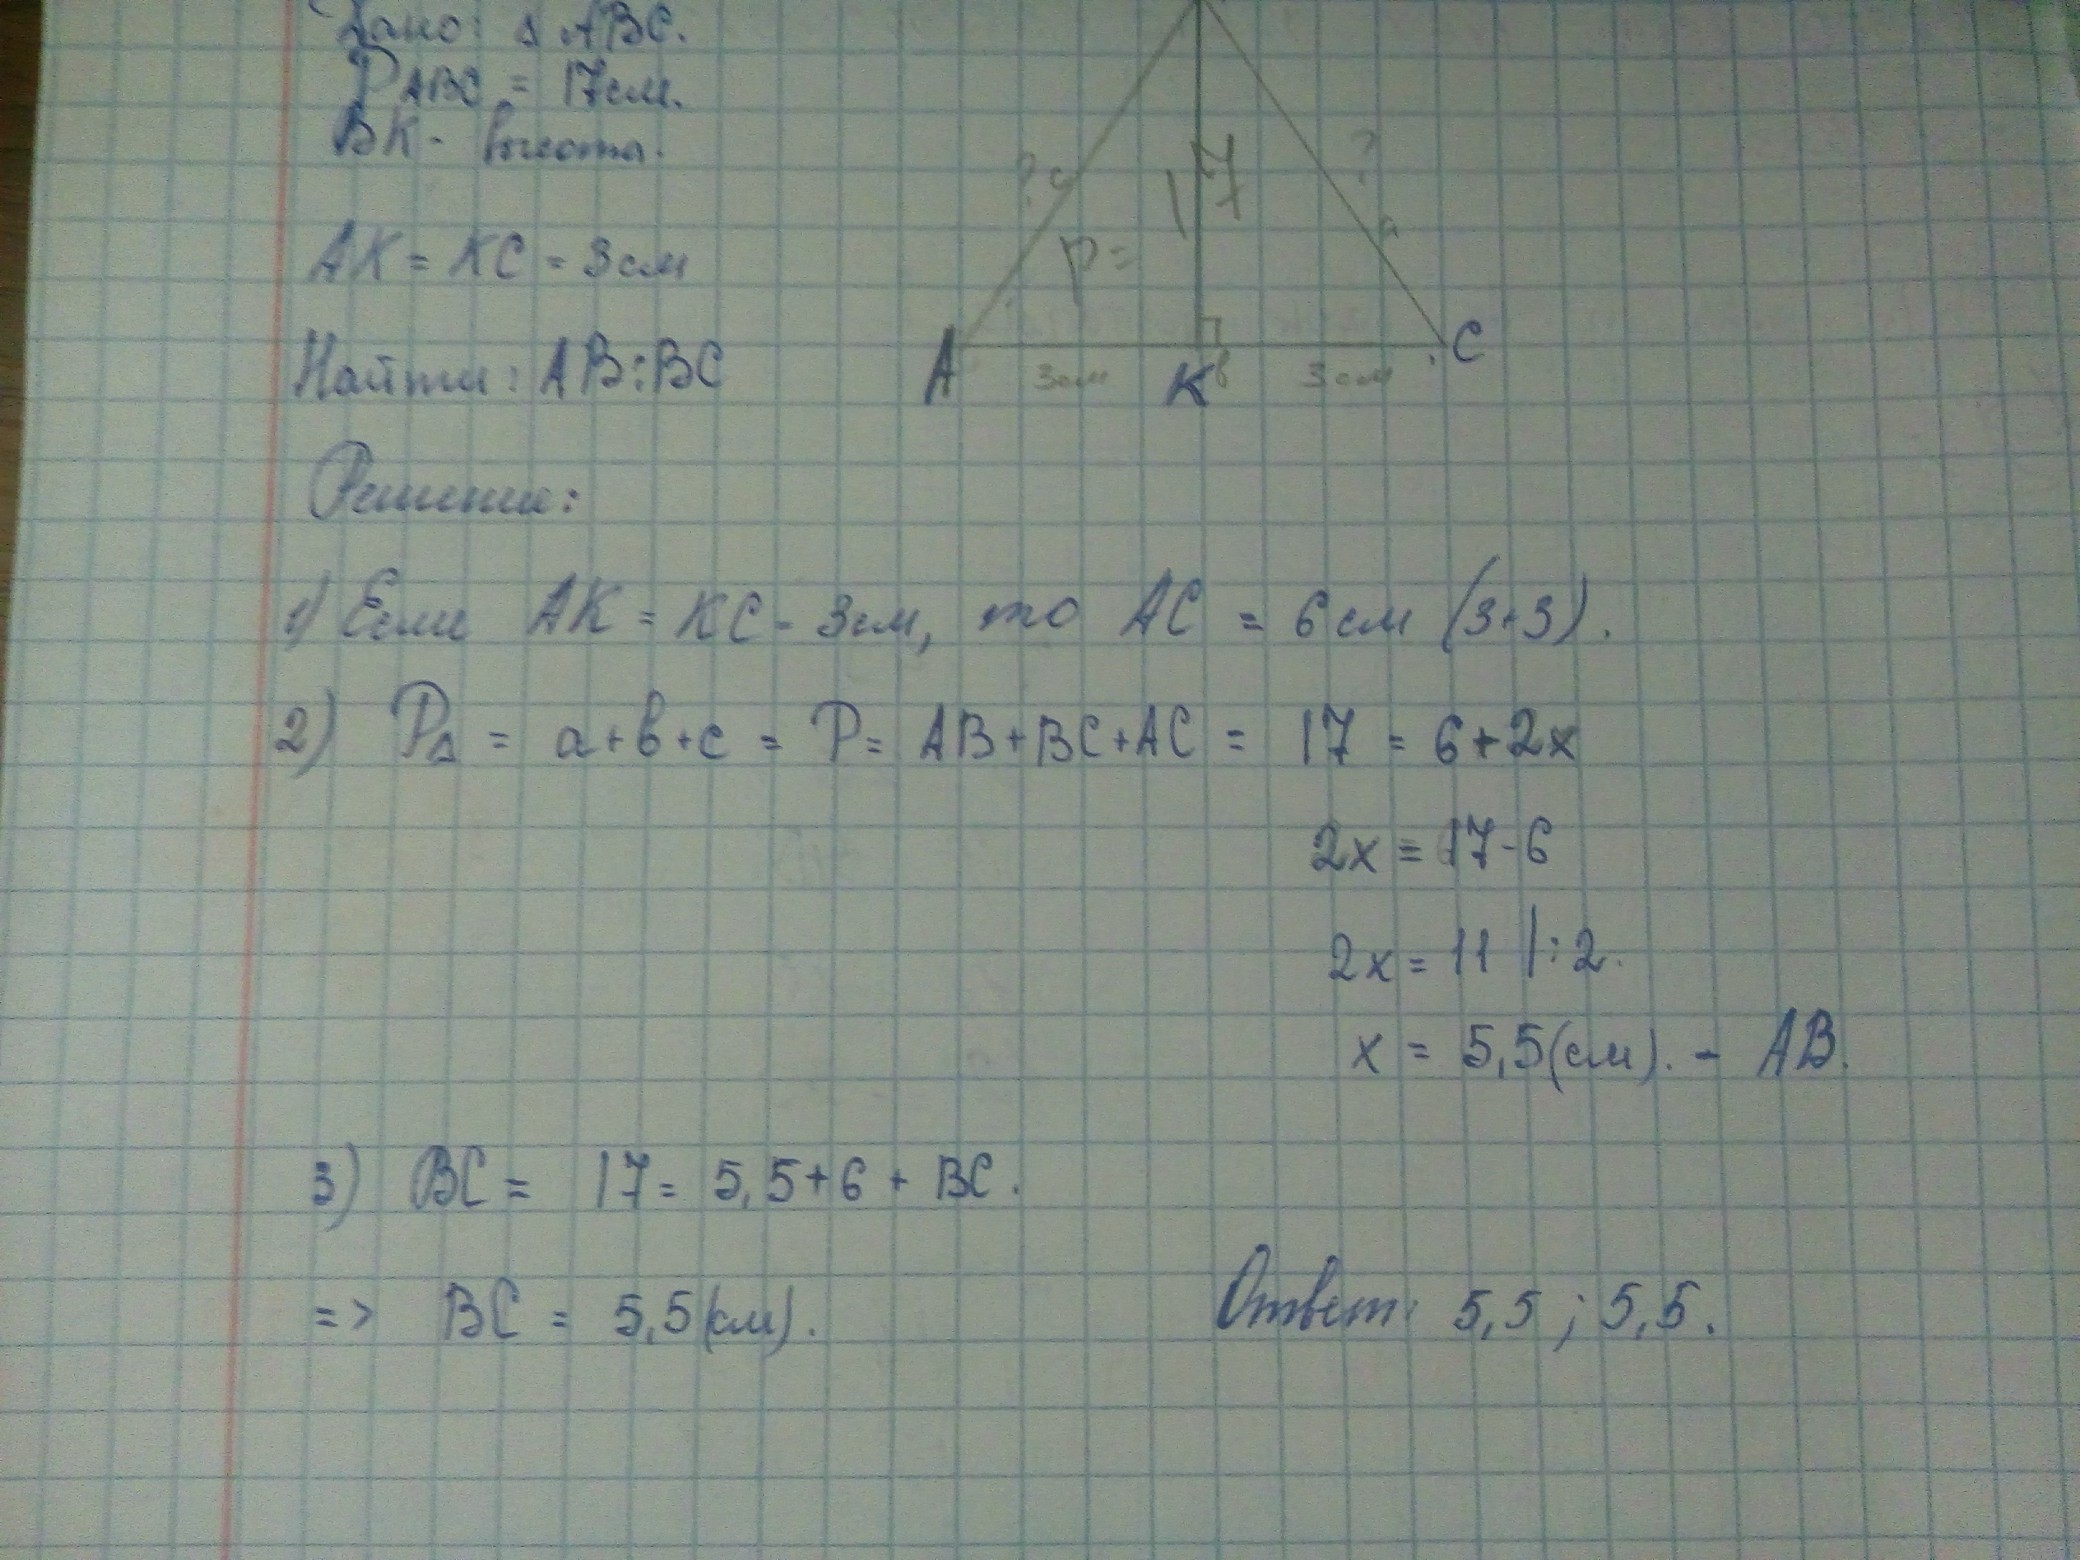 Дано: Δ ABC.
PABC = 17см.
BK - высота.
AK = KC = 3см
Найти: AB; BC
? c
P = 17
?
a
A
3см
K
в
3см
C
Решение:
1) Если AK = KC - 3см, то AC = 6 см (3+3).
2) PΔ = a+в+c = P = AB+BC+AC = 17 = 6+2x
2x = 17-6
2x = 11 |:2.
x = 5,5(см). - AB.
3) BC = 17 = 5,5+6 + BC.
=> BC = 5,5(см).
Ответ: 5,5 ; 5,5.